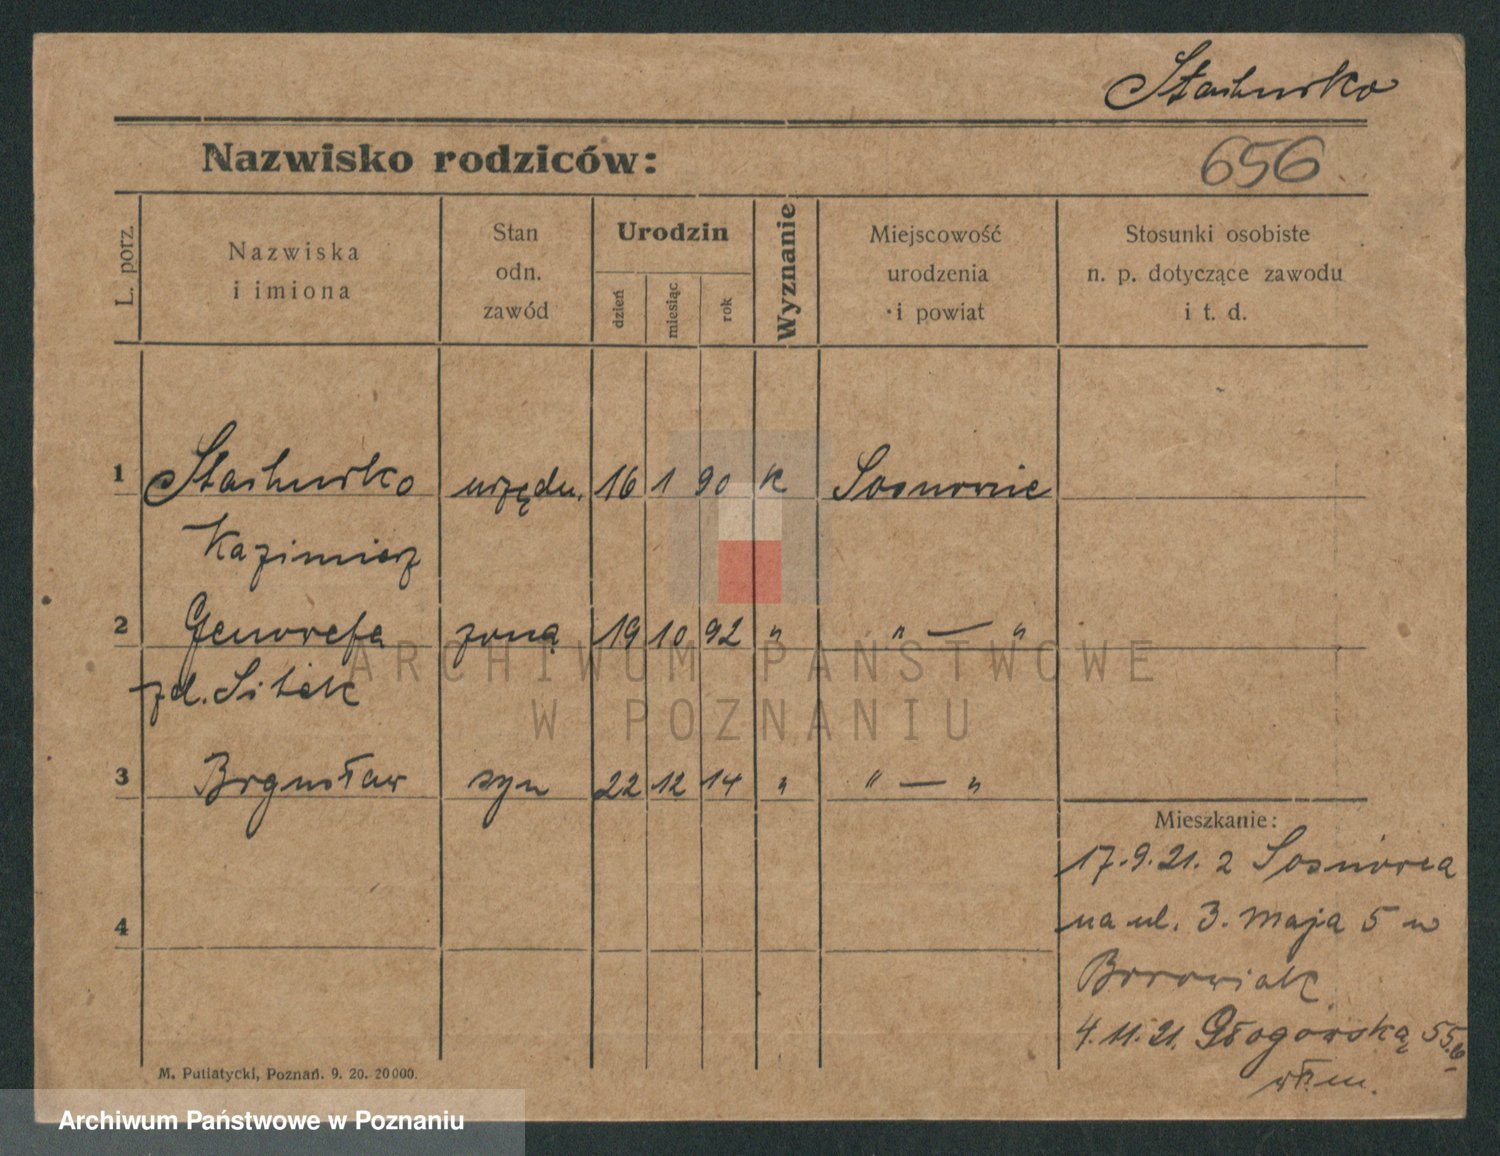 Stachurko
Nazwisko rodziców:
656
L. porz.
Nazwiska
i imiona
Stan
odn.
zawód
Urodzin
dzień
miesiąc
rok
Wyznanie
Miejscowość
urodzenia
i powiat
Stosunki osobiste
n. p. dotyczące zawodu
i t. d.
1 Stachurko urzędn. 16 1 90 K Sosnowie
Kazimierz
2 Genowefa żona 19 10 92 " " — "
zd. Sitek
3 Bogusław syn 22 12 14 " " — "
Mieszkanie:
17.9.21. z Sosnowca
na ul. 3. Maja 5 u
Borowiak
4
4.11.21. Głogowską 55.
M. Putiatycki, Poznań. 9. 20. 20000.
ARCHIWUM PAŃSTWOWE
W POZNANIU
Archiwum Państwowe w Poznaniu